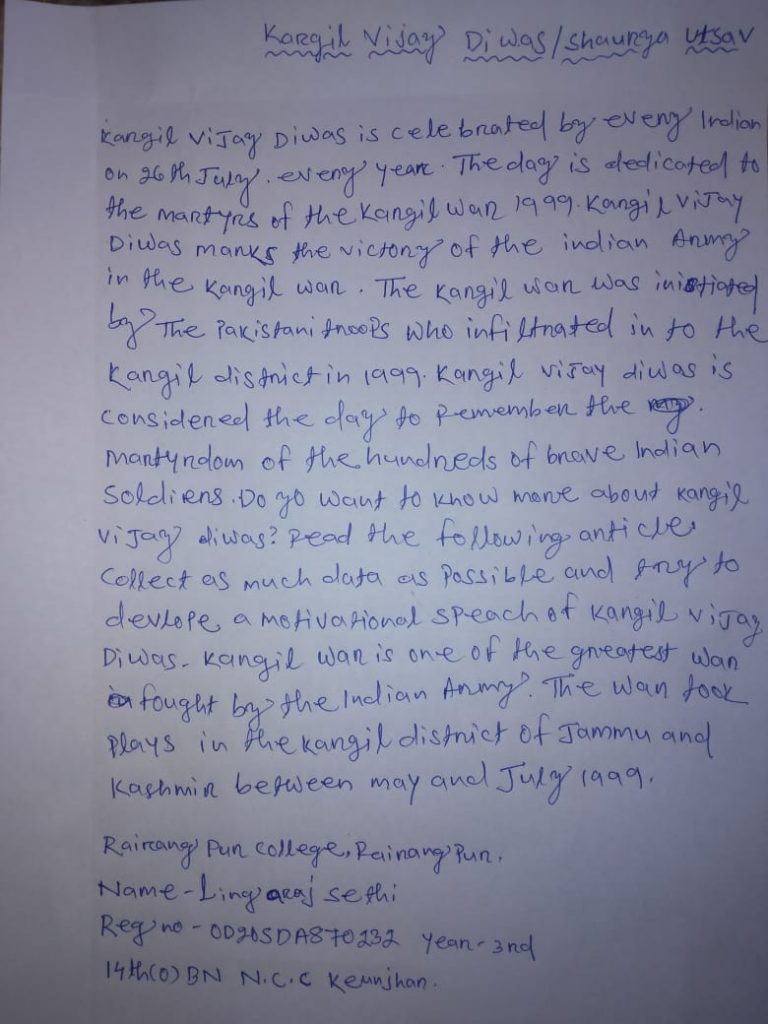 Kargil Vijay Diwas/Shaurya Utsav
Kargil Vijay Diwas is celebrated by every Indian
on 26th July. every year. The day is dedicated to
the martyrs of the Kargil war 1999. Kargil Vijay
Diwas marks the victory of the indian Army
in the Kargil war. The Kargil war was inistiated
by The Pakistani troops who infiltrated in to the
Kargil district in 1999. Kargil vijay diwas is
considered the day to remember the
martyrdom of the hundreds of brave Indian
Soldiers. Do yo want to know more about Kargil
vijay diwas? Read the following article.
Collect as much data as Possible and try to
devlope a motivational speach of Kargil Vijay
Diwas. Kargil war is one of the greatest war
fought by the Indian Army. The war took
plays in the Kargil district of Jammu and
Kashmir between may and July 1999.
Rairang Pur College, Rairang Pur.
Name - Lingaraj Sethi
Reg no - OD20SDA870232 Year - 3rd
14th(O) BN N.C.C Keunjhar.